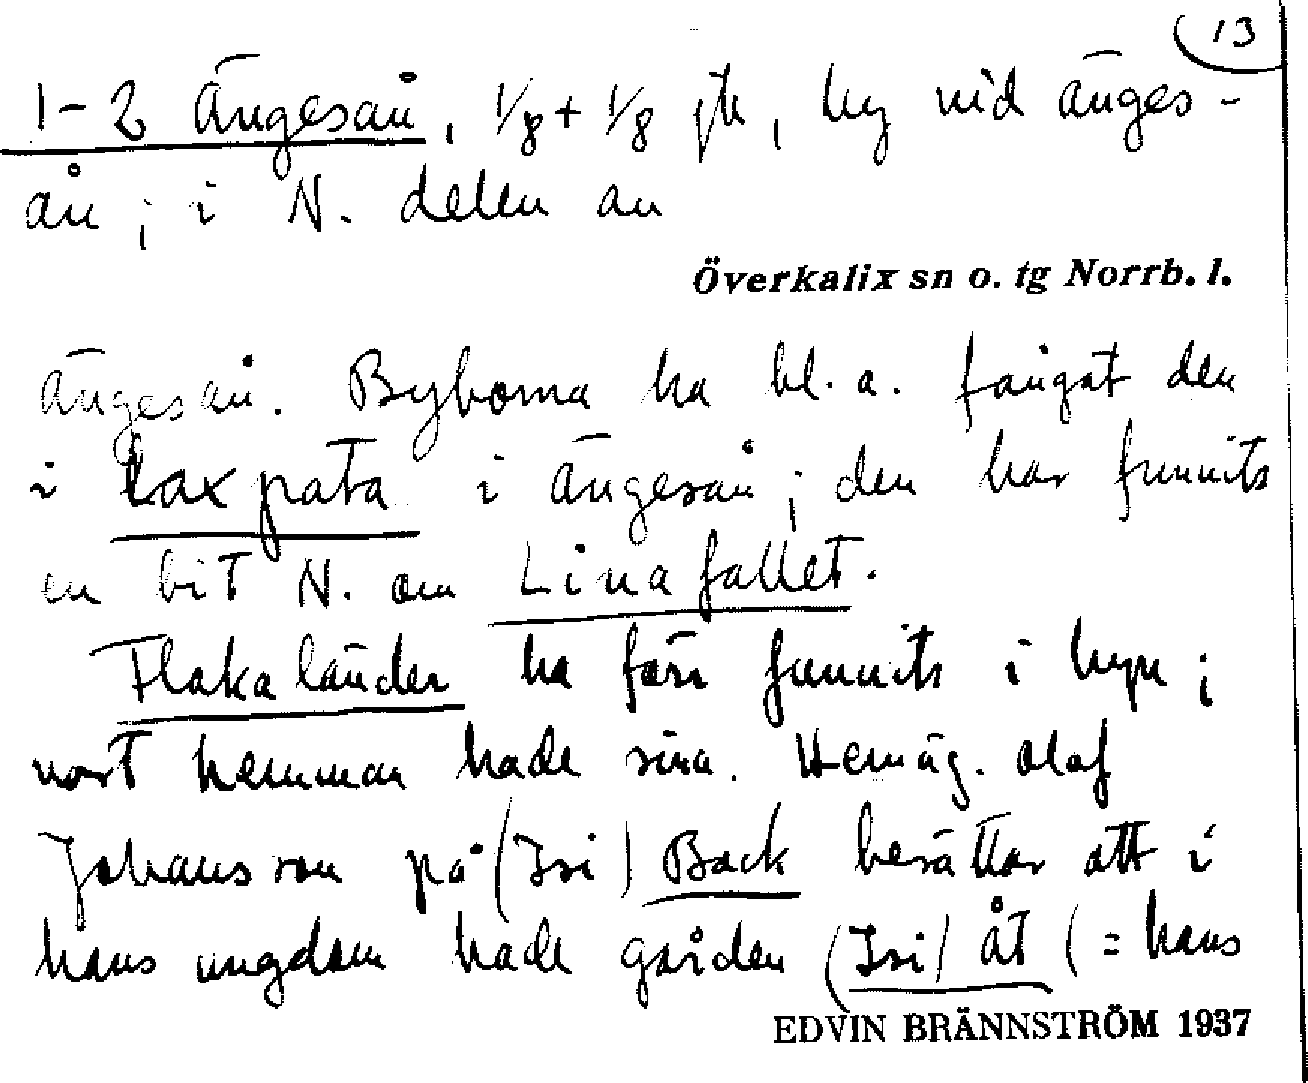 13
1-2 Ängesån, 1/8 + 1/8 jb, by vid Änges-
ån; i N. delen av
Överkalix sn o. tg Norrb. l.
Ängesån. Byborna ha bl. a. fångat den
i Laxpata i Ängesån; den har funnits
en bit N. om Linafallet.
Flakaländer ha förr funnits i byn;
vart hemman hade sina. Hemäg. Olof
Johansson på (Isi) Back berättar att i
hans ungdom hade gården (Isi) åt (= hans
EDVIN BRÄNNSTRÖM 1937